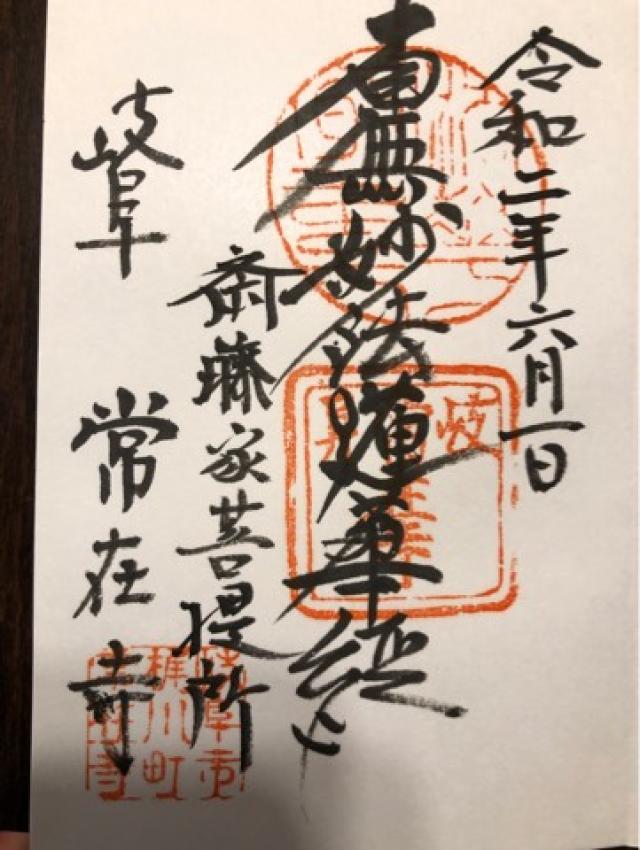 令和二年六月一日
南無妙法蓮華経
斎藤家菩提所
岐阜 常在寺
岐阜市
梶川町
常在寺